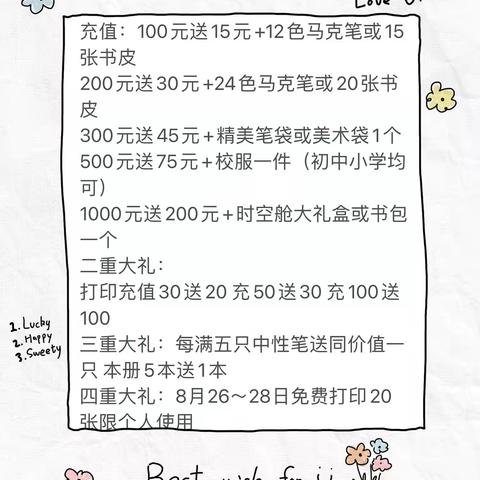 Love
充值：100元送15元+12色马克笔或15
张书皮
200元送30元+24色马克笔或20张书
皮
300元送45元+精美笔袋或美术袋1个
500元送75元+校服一件（初中小学均
可）
1000元送200元+时空舱大礼盒或书包
一个
二重大礼：
打印充值30送20 充50送30 充100送
100
三重大礼：每满五只中性笔送同价值一
只 本册5本送1本
四重大礼：8月26～28日免费打印20
张限个人使用
1.Lucky
2.Happy
3.Sweety
Best wish for